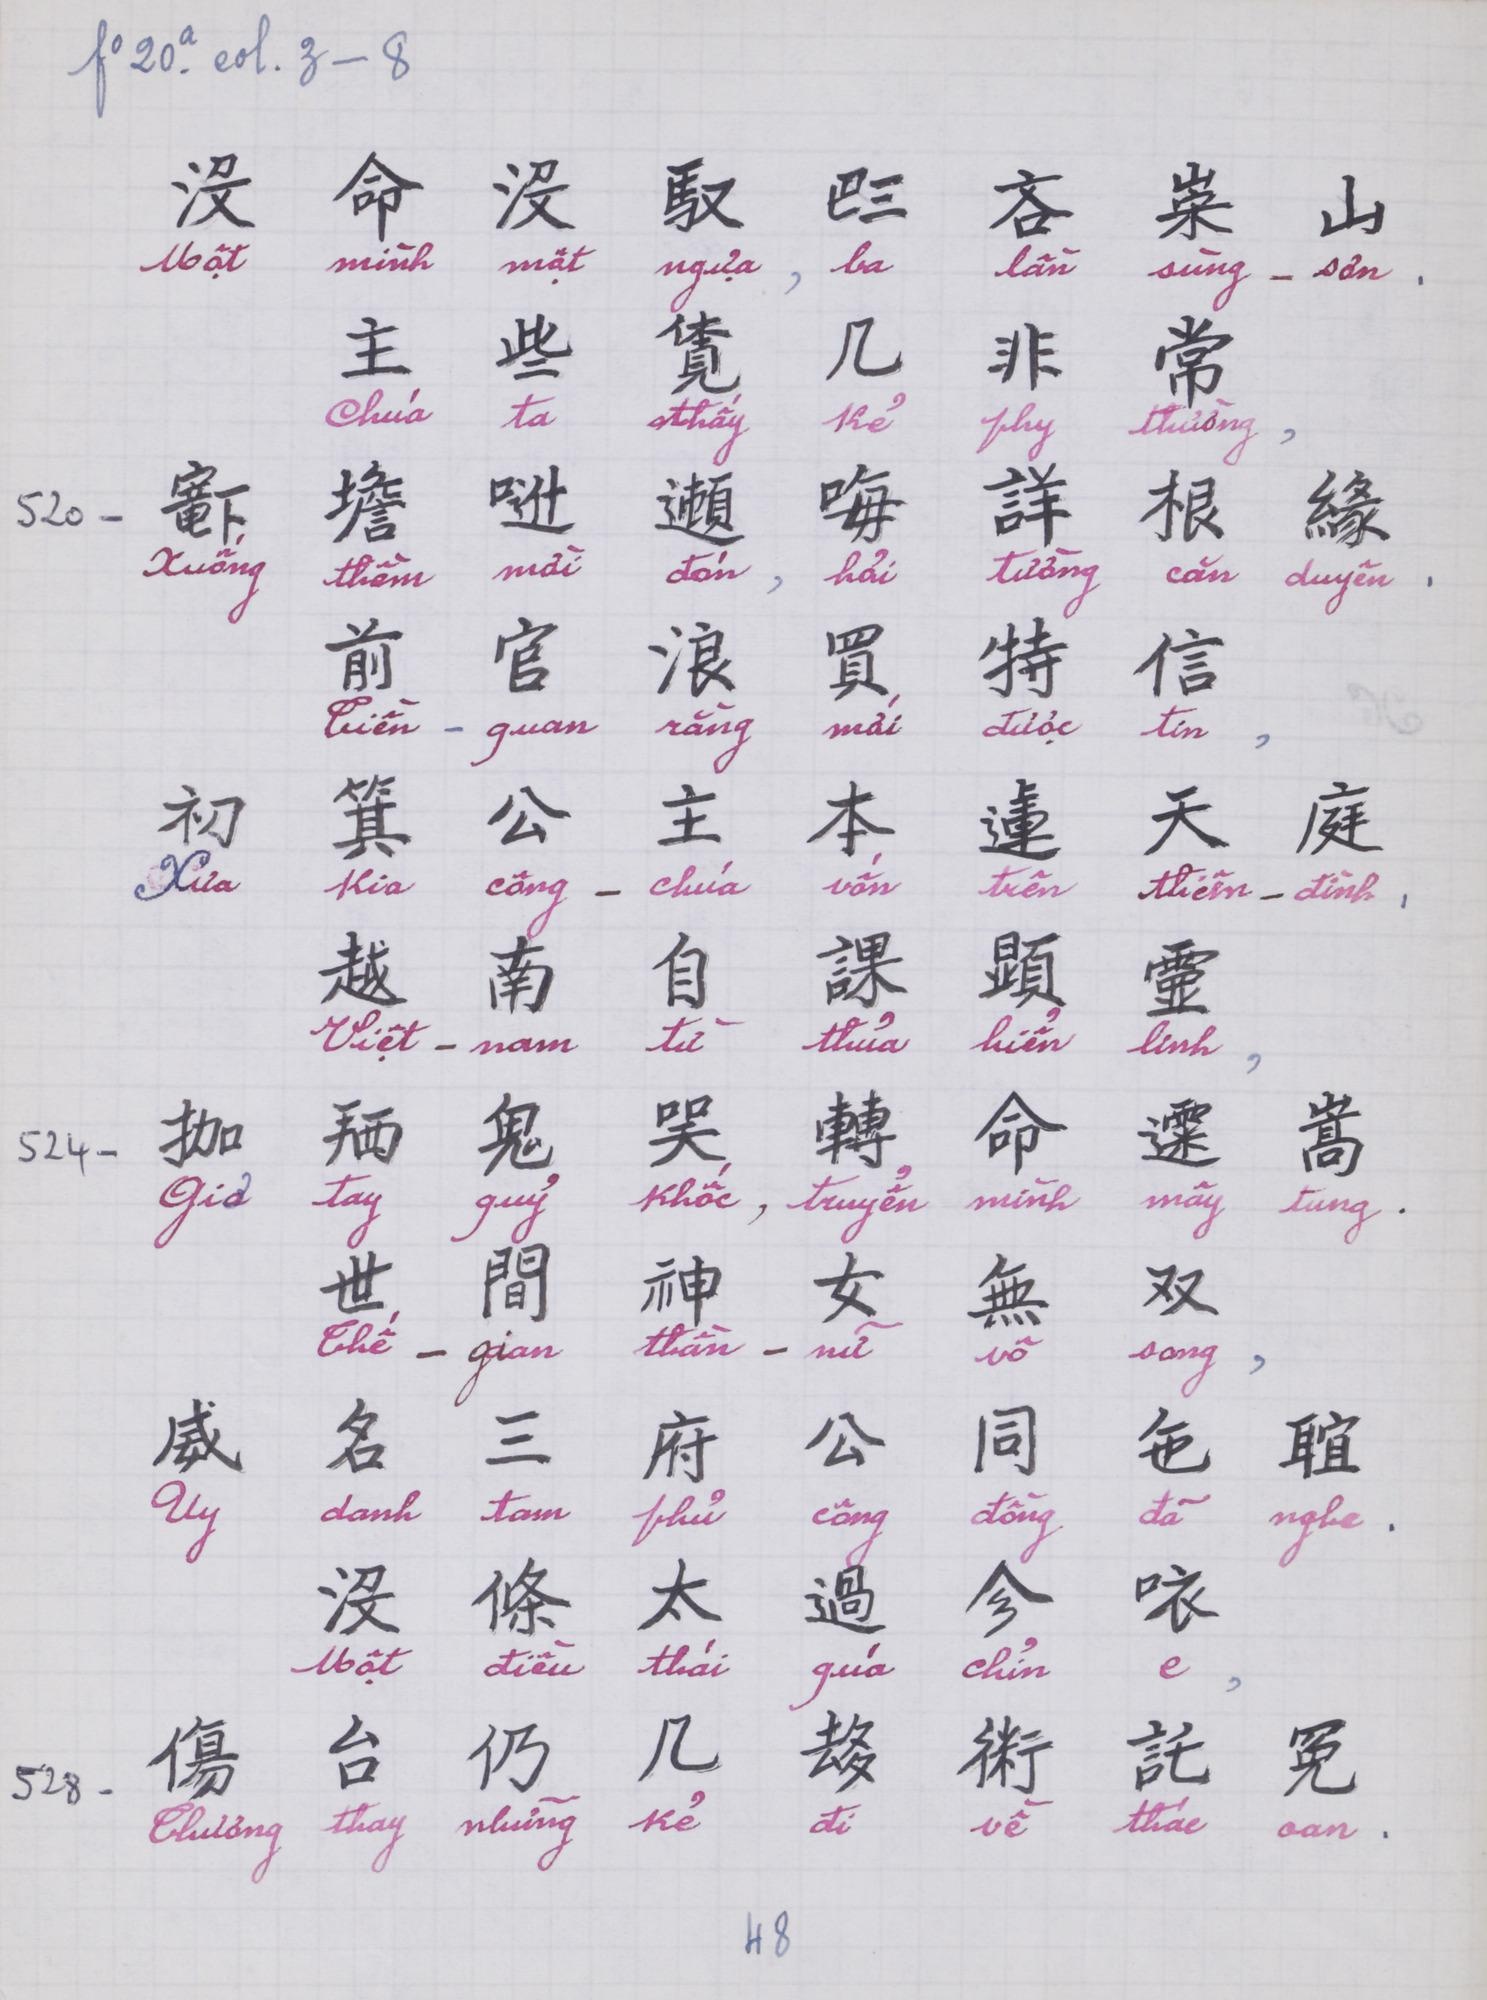 fº 20ª. col. 3 – 8
沒 命 沒 馭 𠀧 吝 崇 山
Một mình một ngựa, ba lần sùng – sơn.
主 些 覧 几 非 常
Chúa ta thấy kẻ phy thường,
520 – 檐 迍 詳 根 緣
Xuống thềm mời đón, hỏi tường căn duyên.
前 官 浪 買 特 信
Tiền – quan rằng mới được tin,
初 箕 公 主 本 蓮 天 庭
Xưa kia công – chúa vốn trên thiên – đình.
越 南 自 課 顕 靈
Việt – nam từ thủa hiển linh,
524 – 拁 𢬣 鬼 哭 轉 命 𩄲 嵩
Giơ tay quỷ khốc, truyển mình mây tung.
世 間 神 女 無 双
Thế – gian thần – nữ vô song,
威 名 三 府 公 同 㐌 𦖑
Uy danh tam phủ công đồng đã nghe.
沒 條 太 過 㐱 𠲖
Một điều thái quá chỉn e,
528 – 傷 台 仍 几 𠫾 術 託 冤
Thương thay những kẻ đi về thác oan.
48